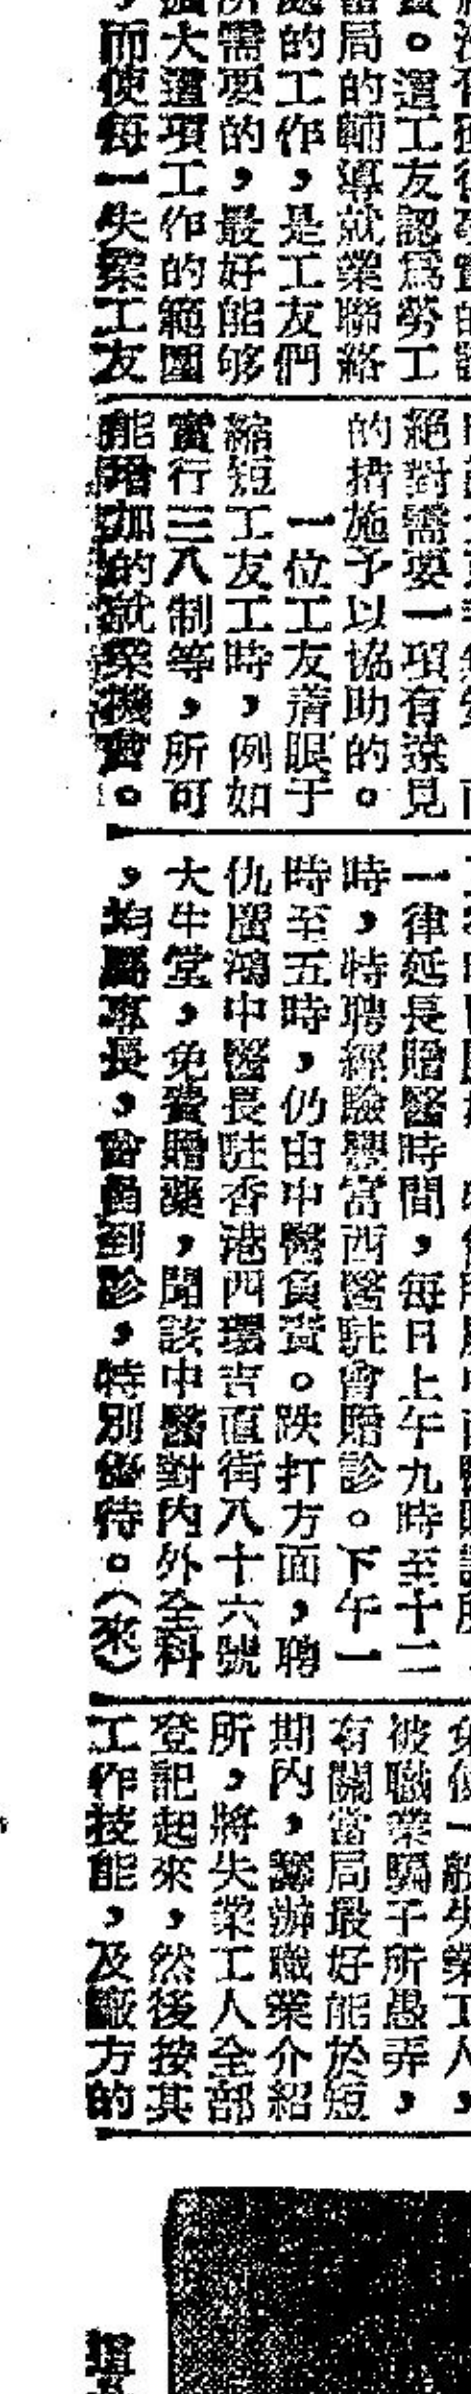 。這工友認爲勞工
局的輔導就業聯絡
的工作，是工友們
需要的，最好能够
大這項工作的範圍
，而使每一失業工友
絕對需要一項有遠見
的措施予以協助的。
一位工友着眼于
縮短工友工時，例如
實行三八制等，所可
能增加的就業機會。
一律延長贈醫時間，每日上午九時至十二
時，特聘經驗豐富西醫駐會贈診。下午一
時至五時，仍由中醫負責。跌打方面，聘
仇廣鴻中醫長駐香港西環吉直街八十六號
大牛堂，免費贈藥，聞該中醫對內外全科
，均屬專長，到診，特別優待。（來）
一般失業工人，
被職業騙子所愚弄，
有關當局最好能於短
期內，籌辦職業介紹
所，將失業工人全部
登記起來，然後按其
工作技能，及廠方的